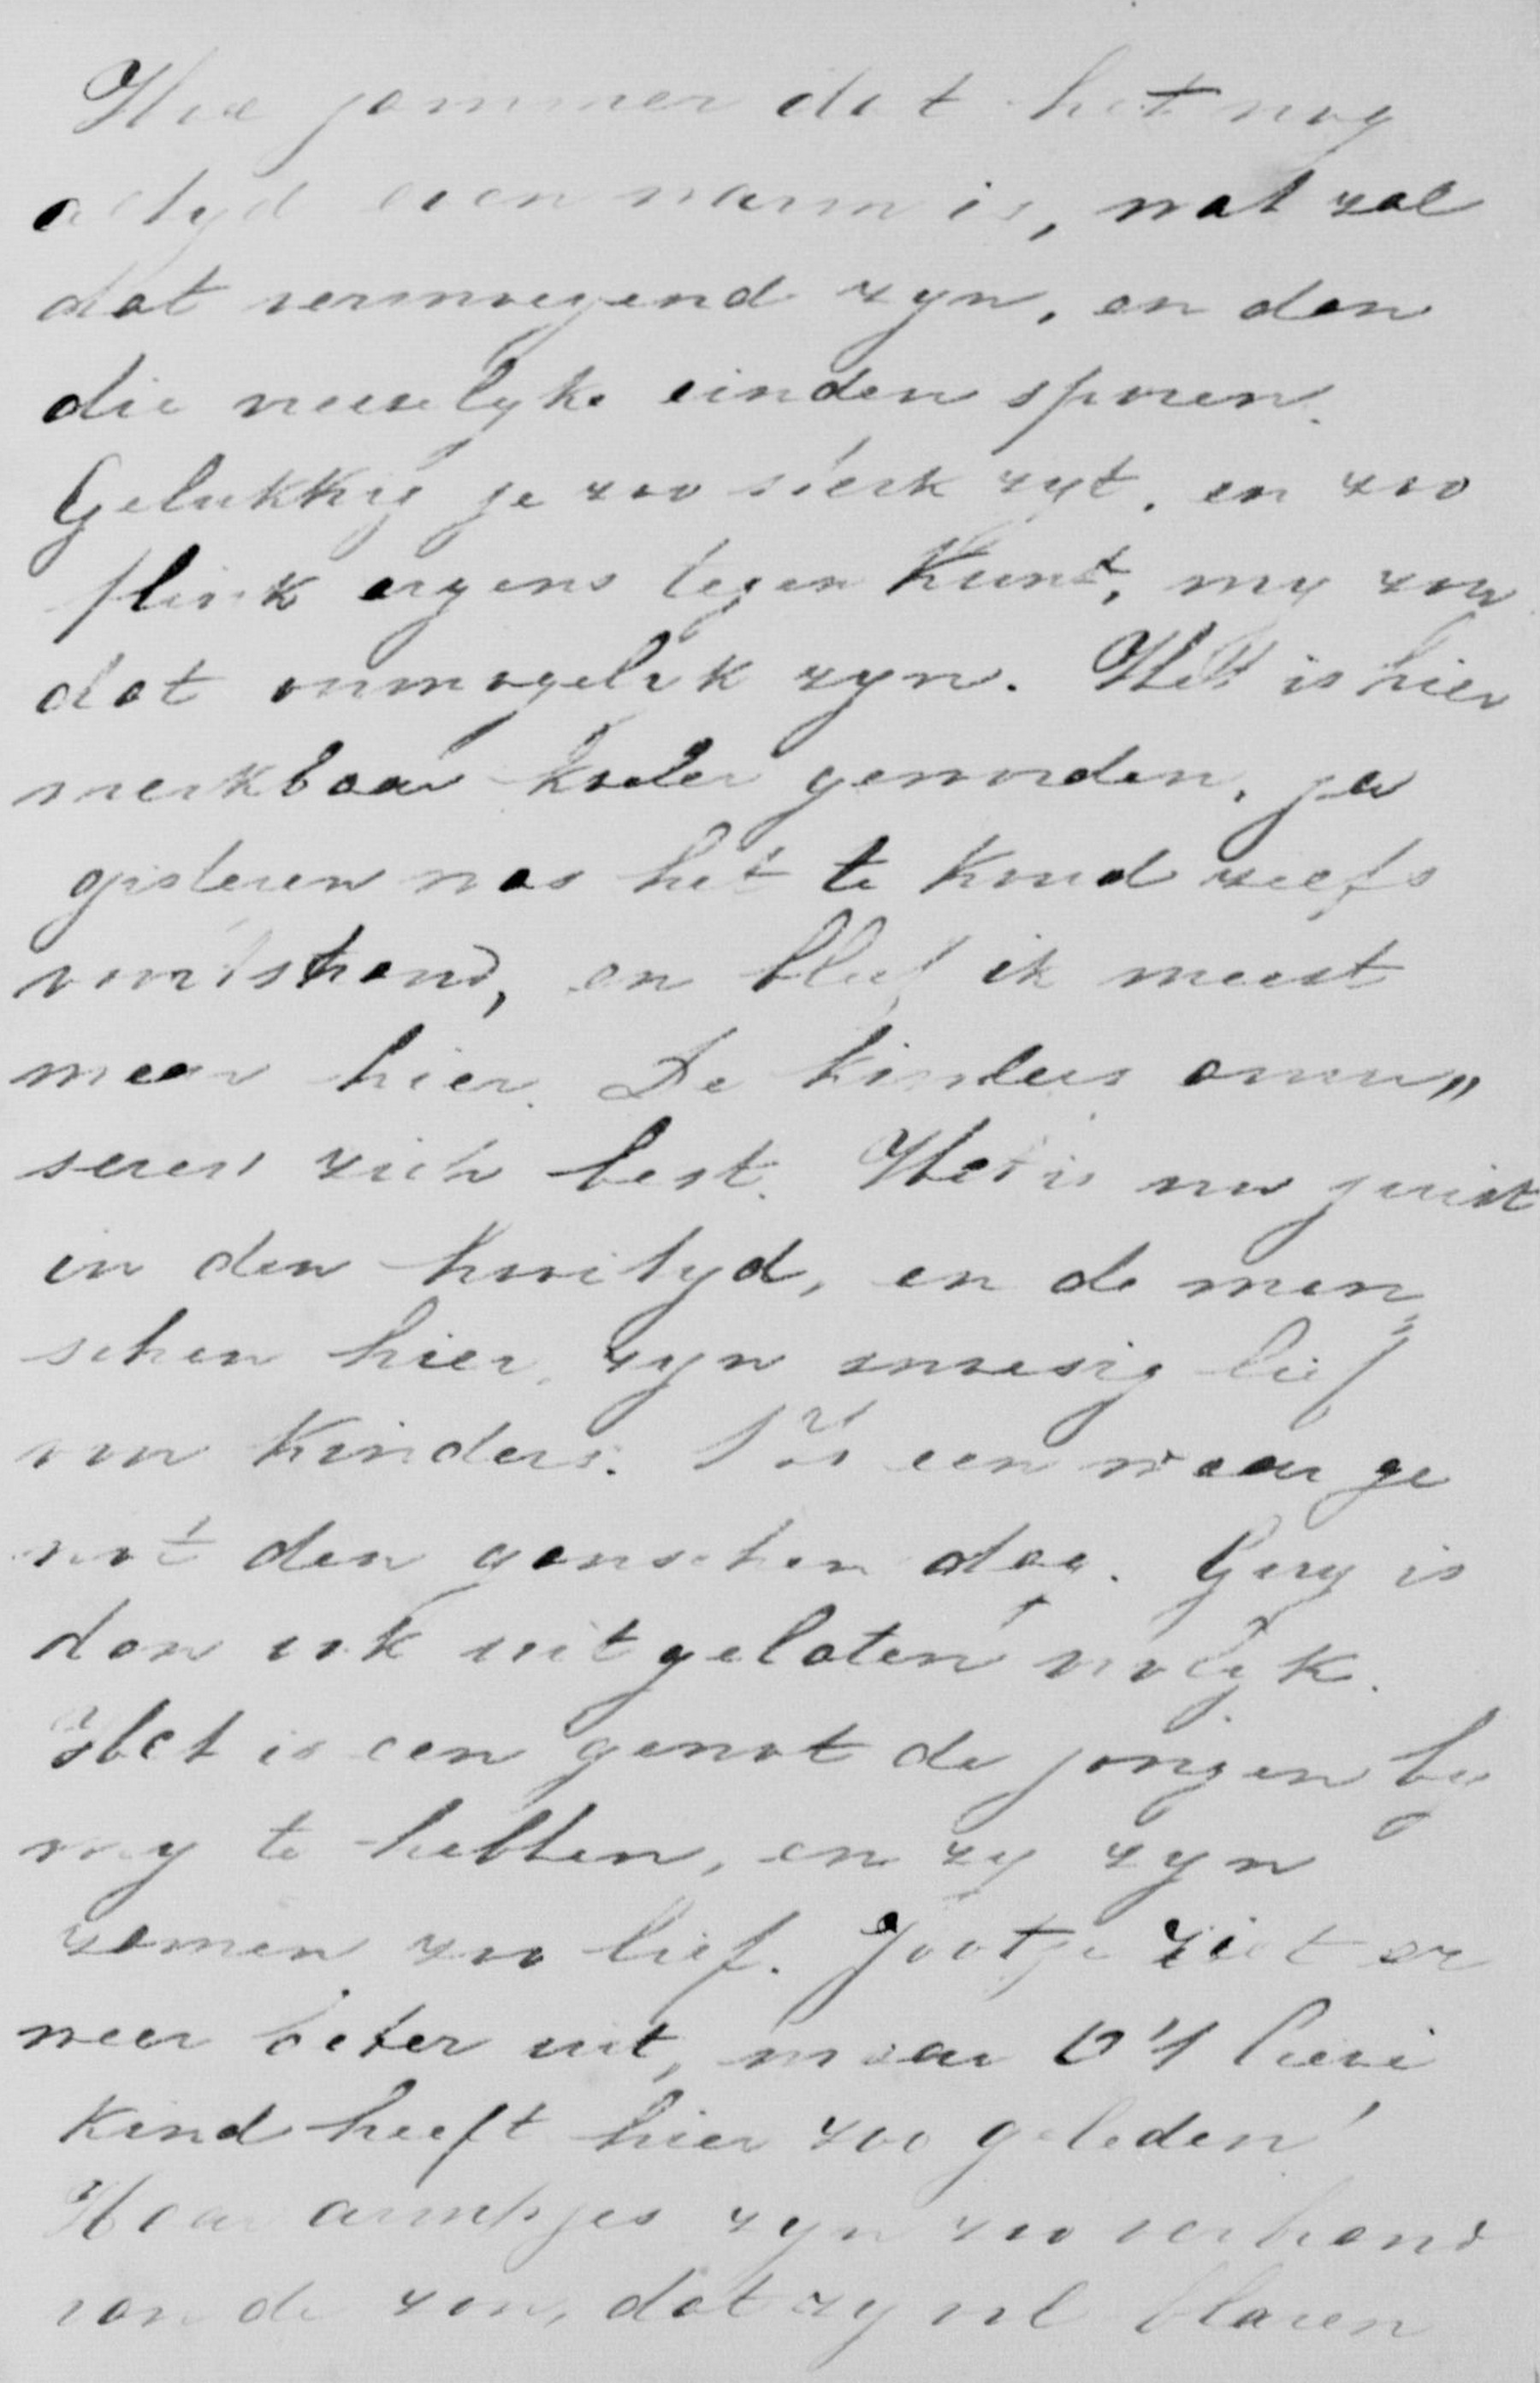 Hoe jammer dat het nog
altyd even warm is, wat zal
dat vermoeyend zyn, en dan
die vreeselyke einden sporen.
Gelukkig je zoo sterk zyt, en zoo
flink ergens tegen kunt, my zou
dat onmogelyk zyn. Het is hier
merkbaar koeler geworden, ja
gisteren was het te koud zelfs
voor 't strand, en bleef ik meest
maar hier. De kinders amu„
seren zich best. Het is nu juist
in den hooityd, en de men„
schen hier, zyn onwesig lief
voor kinders. 't Is een waar ge
not den ganschen dag. Gery is
dan ook uitgelaten vrolyk.
Het is een genot de jongen by
my te hebben, en zy zyn
zamen zoo lief. Jootje ziet er
weer beter uit, maar O 't lieve
kind heeft hier zoo geleden!
Haar armtjes zyn zoo verbrand
van de zon, dat zy vol blaren